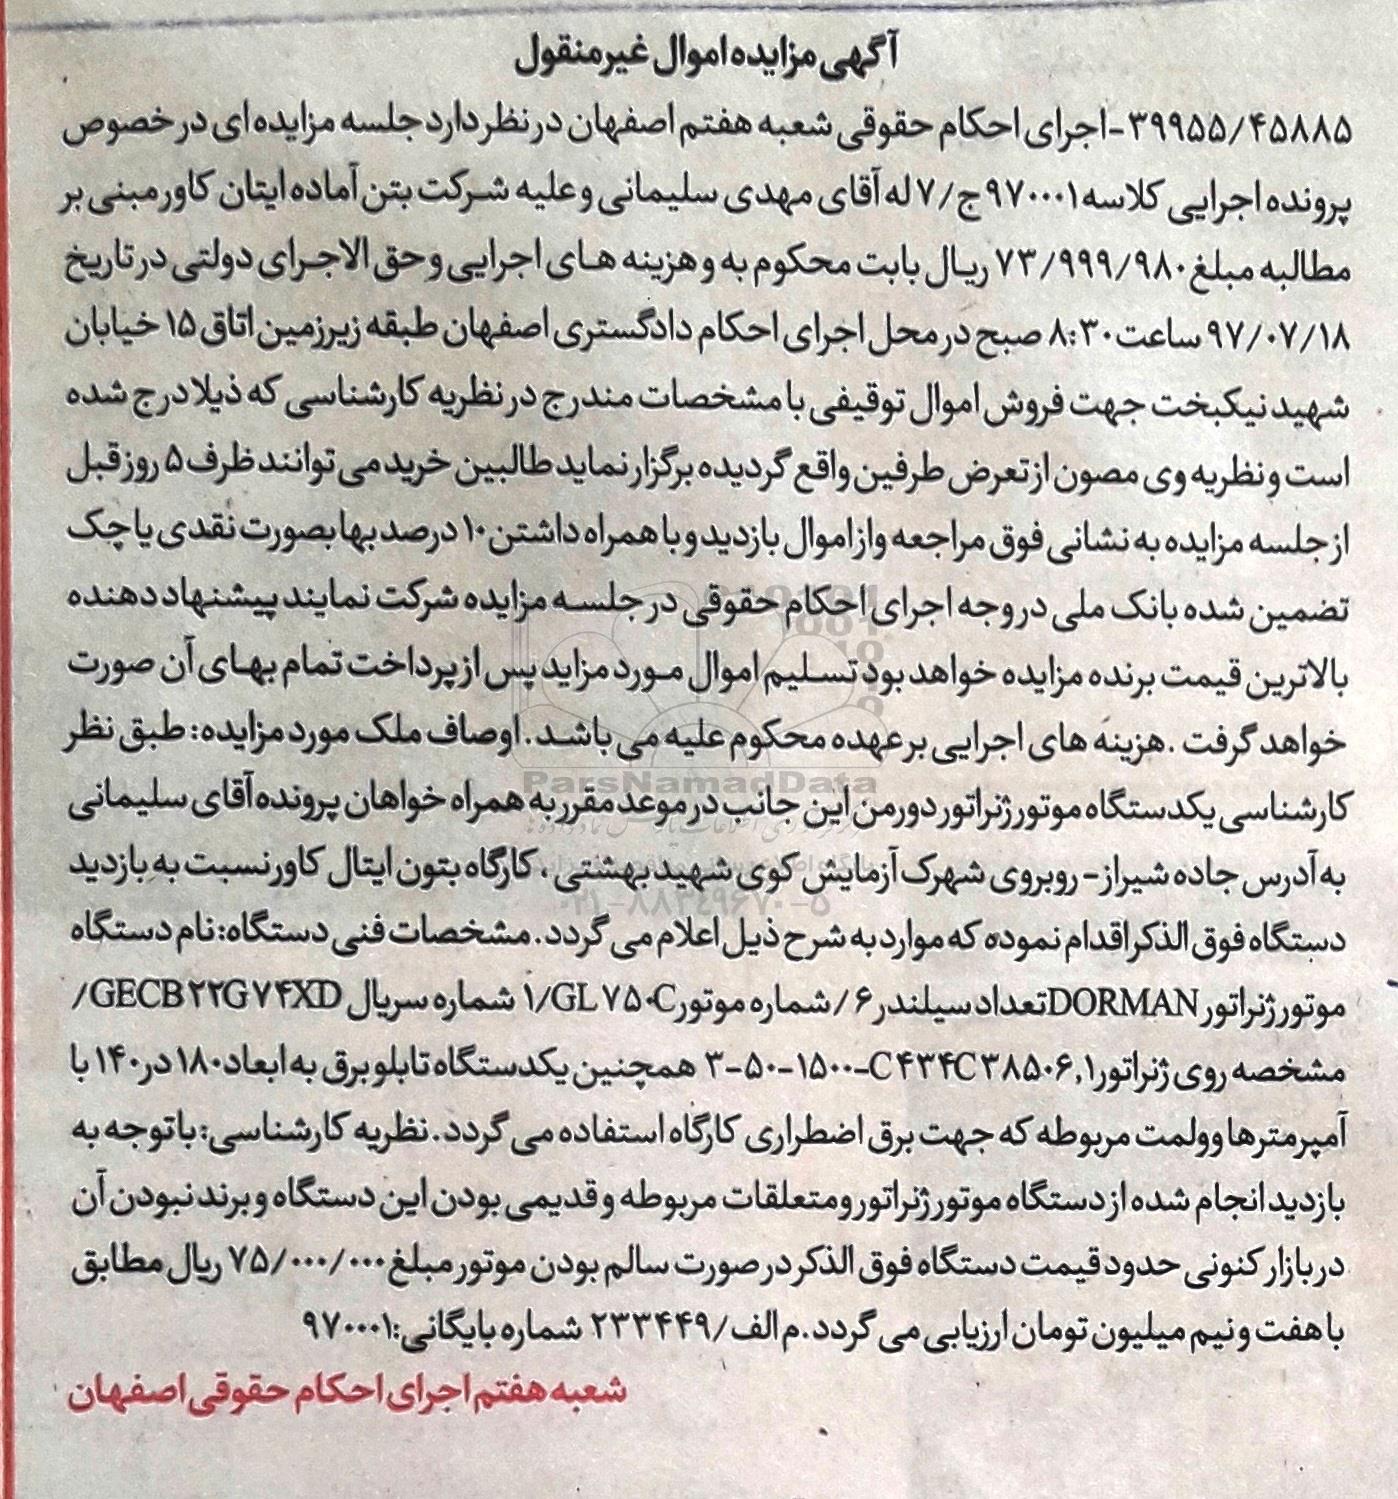 آگهی مزایده اموال غیرمنقول
۳۹۹۵۵/۴۵۸۸۵-اجرای احکام حقوقی شعبه هفتم اصفهان در نظر دارد جلسه مزایده ای در خصوص
پرونده اجرایی کلاسه ۹۷۰۰۰۱ ج/۷ له آقای مهدی سلیمانی و علیه شرکت بتن آماده ایتان کاور مبنی بر
مطالبه مبلغ ۷۳/۹۹۹/۹۸۰ ریال بابت محکوم به و هزینه های اجرایی و حق الاجرای دولتی در تاریخ
۹۷/۰۷/۱۸ ساعت ۸:۳۰ صبح در محل اجرای احکام دادگستری اصفهان طبقه زیرزمین اتاق ۱۵ خیابان
شهید نیکبخت جهت فروش اموال توقیفی با مشخصات مندرج در نظریه کارشناسی که ذیلا درج شده
است و نظریه وی مصون از تعرض طرفین واقع گردیده برگزار نماید طالبین خرید می توانند ظرف ۵ روز قبل
از جلسه مزایده به نشانی فوق مراجعه و از اموال بازدید و با همراه داشتن ۱۰ درصد بها بصورت نقدی یا چک
تضمین شده بانک ملی در وجه اجرای احکام حقوقی در جلسه مزایده شرکت نمایند پیشنهاد دهنده
بالاترین قیمت برنده مزایده خواهد بود تسلیم اموال مورد مزاید پس از پرداخت تمام بهای آن صورت
خواهد گرفت .هزینه های اجرایی بر عهده محکوم علیه می باشد. اوصاف ملک مورد مزایده: طبق نظر
کارشناسی یکدستگاه موتور ژنراتور دورمن این جانب در موعد مقرر به همراه خواهان پرونده آقای سلیمانی
به آدرس جاده شیراز- روبروی شهرک آزمایش کوی شهید بهشتی، کارگاه بتون ایتال کاور نسبت به بازدید
دستگاه فوق الذکر اقدام نموده که موارد به شرح ذیل اعلام می گردد. مشخصات فنی دستگاه: نام دستگاه
موتور ژنراتور DORMAN تعداد سیلندر ۶ /شماره موتور ۱/GL۷۵۰C شماره سریال GECB۲۲G۷۴XD/
مشخصه روی ژنراتور C۴۳۴C۳۸۵۰۶,۱-۱۵۰۰-۵۰-۳ همچنین یکدستگاه تابلو برق به ابعاد ۱۸۰ در ۱۴۰ با
آمپرمترها وولمت مربوطه که جهت برق اضطراری کارگاه استفاده می گردد. نظریه کارشناسی: با توجه به
بازدید انجام شده از دستگاه موتور ژنراتور و متعلقات مربوطه و قدیمی بودن این دستگاه و برند نبودن آن
در بازار کنونی حدود قیمت دستگاه فوق الذکر در صورت سالم بودن موتور مبلغ ۷۵/۰۰۰/۰۰۰ ریال مطابق
با هفت و نیم میلیون تومان ارزیابی می گردد. م الف/۲۳۳۴۴۹ شماره بایگانی: ۹۷۰۰۰۱
شعبه هفتم اجرای احکام حقوقی اصفهان
ParsNamadData
۰۲۱-۸۸۳۴۹۶۷۰-۵